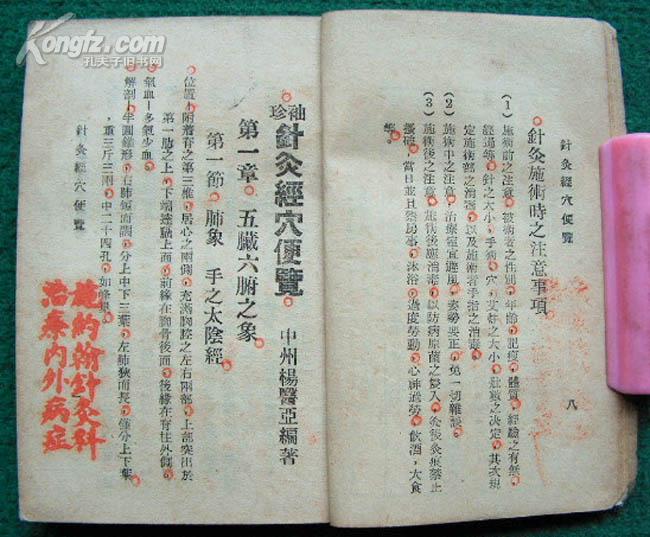 Kongfz.com
孔夫子旧书网
針灸經穴便覽
針灸施術時之注意事項
(1)施術前之注意 被術者之性別 年齡 肥瘦 體質 經驗之有無
經過等 針之大小 手術 穴 艾炷之大小 壯數之決定 其次規
定施術部之消毒 以及施術者手指之消毒
(2)施術中之注意 治療室宜避風 姿勢要正 免一切雜談
(3)施術後之注意 施術後應消毒 以防病原菌之侵入 灸後灸痕禁止
搔破 當日並且禁房事 沐浴 過度勞動 心神過勞 飲酒 大食
等
八
袖珍 針灸經穴便覽
中州楊醫亞編著
第一章 五臟六腑之象
第一節 肺象 手之太陰經
位置—附著脊之第三椎 居心之兩側 充滿胸腔之左右兩部 上部突出於
第一肋之上 下端達膈上面 前緣在胸骨後面 後緣在脊柱外側
氣血—多氣少血
解剖—半圓錐形 右肺短而闊 分上中下三葉 左肺狹而長 僅分上下葉
重三斤三兩 中二十四孔 如蜂巢
針灸經穴便覽
施約翰針灸科
治療內外病症